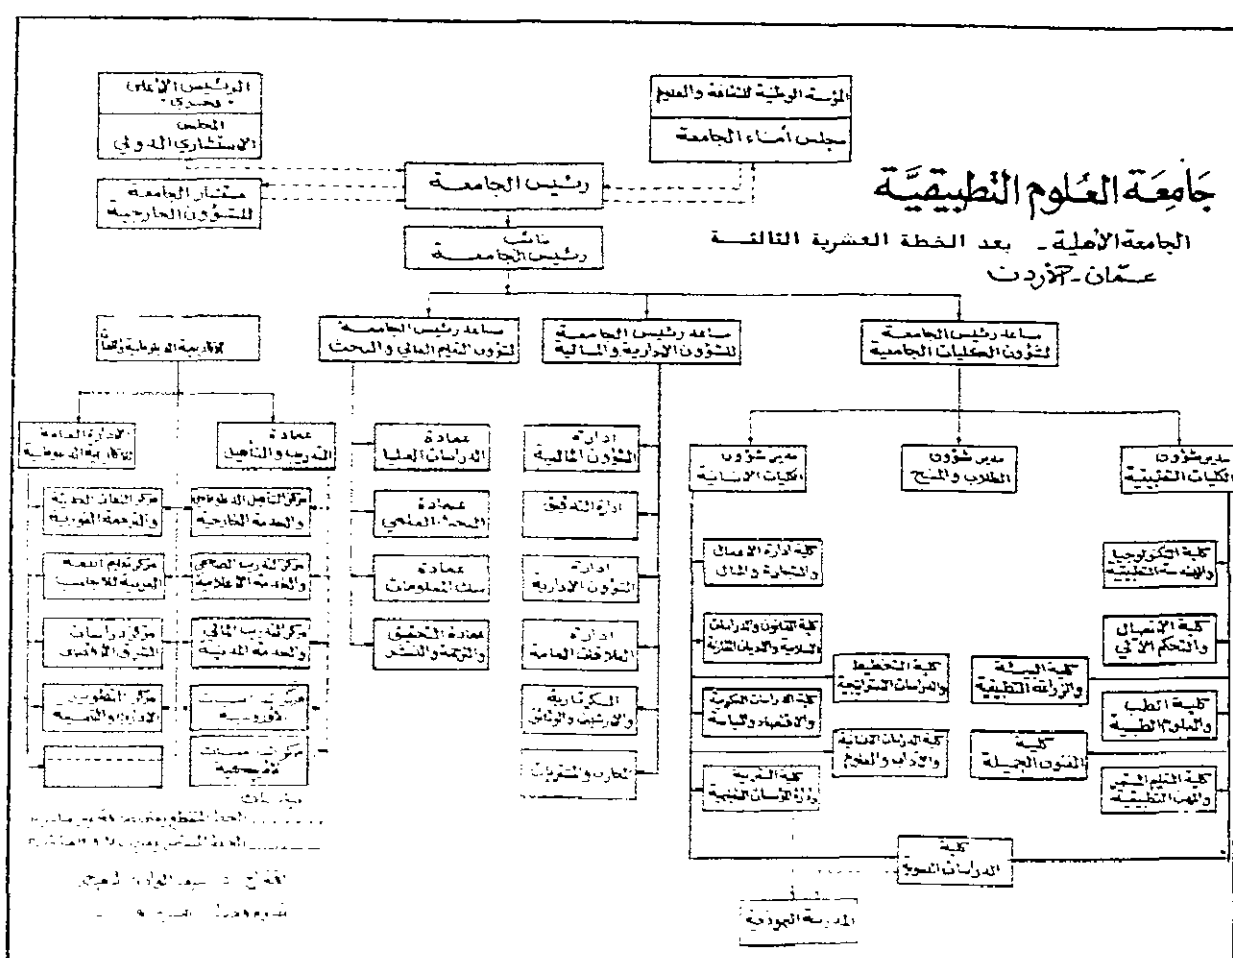 جَامِعَة العُلوم التَطبيقيَّة
الجامعة الأهلية - بعد الخطة العشرية الثالثة
عمّان - الأردن
الرئيس الأعلى
"فخري"
المجلس
الاستشاري الدولي
المؤسسة الوطنية للثقافة والعلوم
مجلس أمناء الجامعة
رئيس الجامعة
مستشار الجامعة
للشؤون الخارجية
نائب
رئيس الجامعة
مساعد رئيس الجامعة
لشؤون الكليات الجامعية
مساعد رئيس الجامعة
للشؤون الادارية والمالية
مساعد رئيس الجامعة
لشؤون التعليم العالي والبحث
مدير شؤون
الكليات التطبيقية
مدير شؤون
الطلاب والمنح
مدير شؤون
الكليات الانسانية
كلية التكنولوجيا
والهندسة التطبيقية
كلية الاتصال
والتحكم الآلي
كلية الطب
والعلوم الطبية
كلية التعليم المستمر
والمهن التطبيقية
كلية البيئة
والزراعة التطبيقية
كلية
الفنون الجميلة
كلية ادارة الاعمال
والتجارة والمال
كلية القانون والدراسات
كلية التخطيط
والدراسات الاستراتيجية
والاقتصاد والسياسة
كلية الدراسات الانسانية
والآداب والعلوم
كلية التربية
كلية
الدراسات
المدرسة النموذجية
ادارة
الشؤون المالية
ادارة التدقيق
ادارة
الشؤون الادارية
ادارة
العلاقات العامة
السكرتارية
والارشيف والوثائق
عمادة
الدراسات العليا
عمادة
البحث العلمي
عمادة
بنك المعلومات
عمادة التحقيق
والترجمة والنشر
عمادة
التدريب والتأهيل
الادارة العامة
للأكاديمية الدبلوماسية
مركز التأهيل الدبلوماسي
والخدمة الخارجية
مركز التدريب الصحفي
والخدمة الاعلامية
مركز التدريب المالي
والخدمة المدنية
مركز اللغات الحديثة
والترجمة الفورية
مركز تعليم اللغة
العربية للأجانب
مركز دراسات
الشرق الأقصى
مركز التطوير